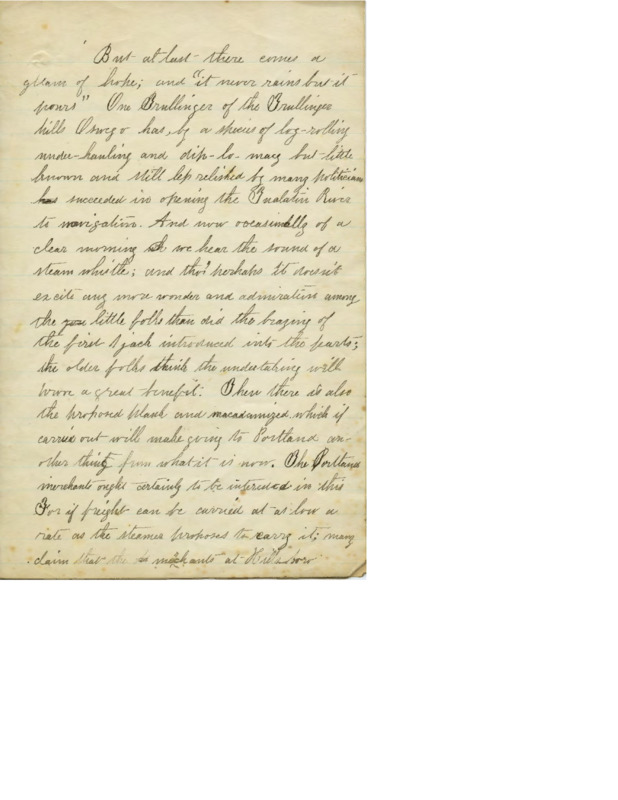 But at last there comes a
gleam of hope; and "it never rains but it
pours" One Trullinger of the Trullinger
Mills Oswego has, by a species of log-rolling
under-hauling and dip-lo-macy but little
known and still less relished by many politicians
has succeeded in opening the Tualatin River
to navigation. And now occasionally of a
clear morning we hear the sound of a
steam whistle; and tho' perhaps it doesn't
excite any more wonder and admiration among
the little folks than did the braying of
the first Jack introduced into the parts;
the older folks think the undertaking will
prove a great benefit. Then there is also
the proposed plank and macadamized which if
carried out will make going to Portland an-
other thing from what it is now. The Portland
merchants ought certainly to be interested in this
For if freight can be carried at as low a
rate as the steamer proposes to carry it; many
claim that the merchants at Hillsboro